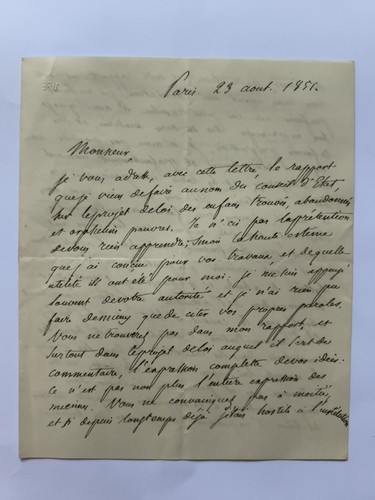 Paris. 23 aout. 1851.
Monsieur,
je vous adresse, avec cette lettre, le rapport
que je viens de faire au nom du conseil d'Etat,
sur le projet de loi des enfans trouvés, abandonnés
et orphelins pauvres. Je n'ai pas la prétention
de vous rien apprendre; mais la haute estime
que j'ai conçue pour vos travaux, et de quelle
utilité ils ont été pour moi. je me suis appuyé
souvent de votre autorité et je n'ai rien pu
faire de mieux que de citer vos propres paroles.
Vous ne trouverez pas dans mon rapport, et
surtout dans le projet de loi auquel il sert de
commentaire, l'expression complète de vos idées.
Ce n'est pas non plus l'entière expression des
miennes. Vous ne convainquez pas à moitié,
et si depuis longtemps déjà j'étais hostile à l'institution